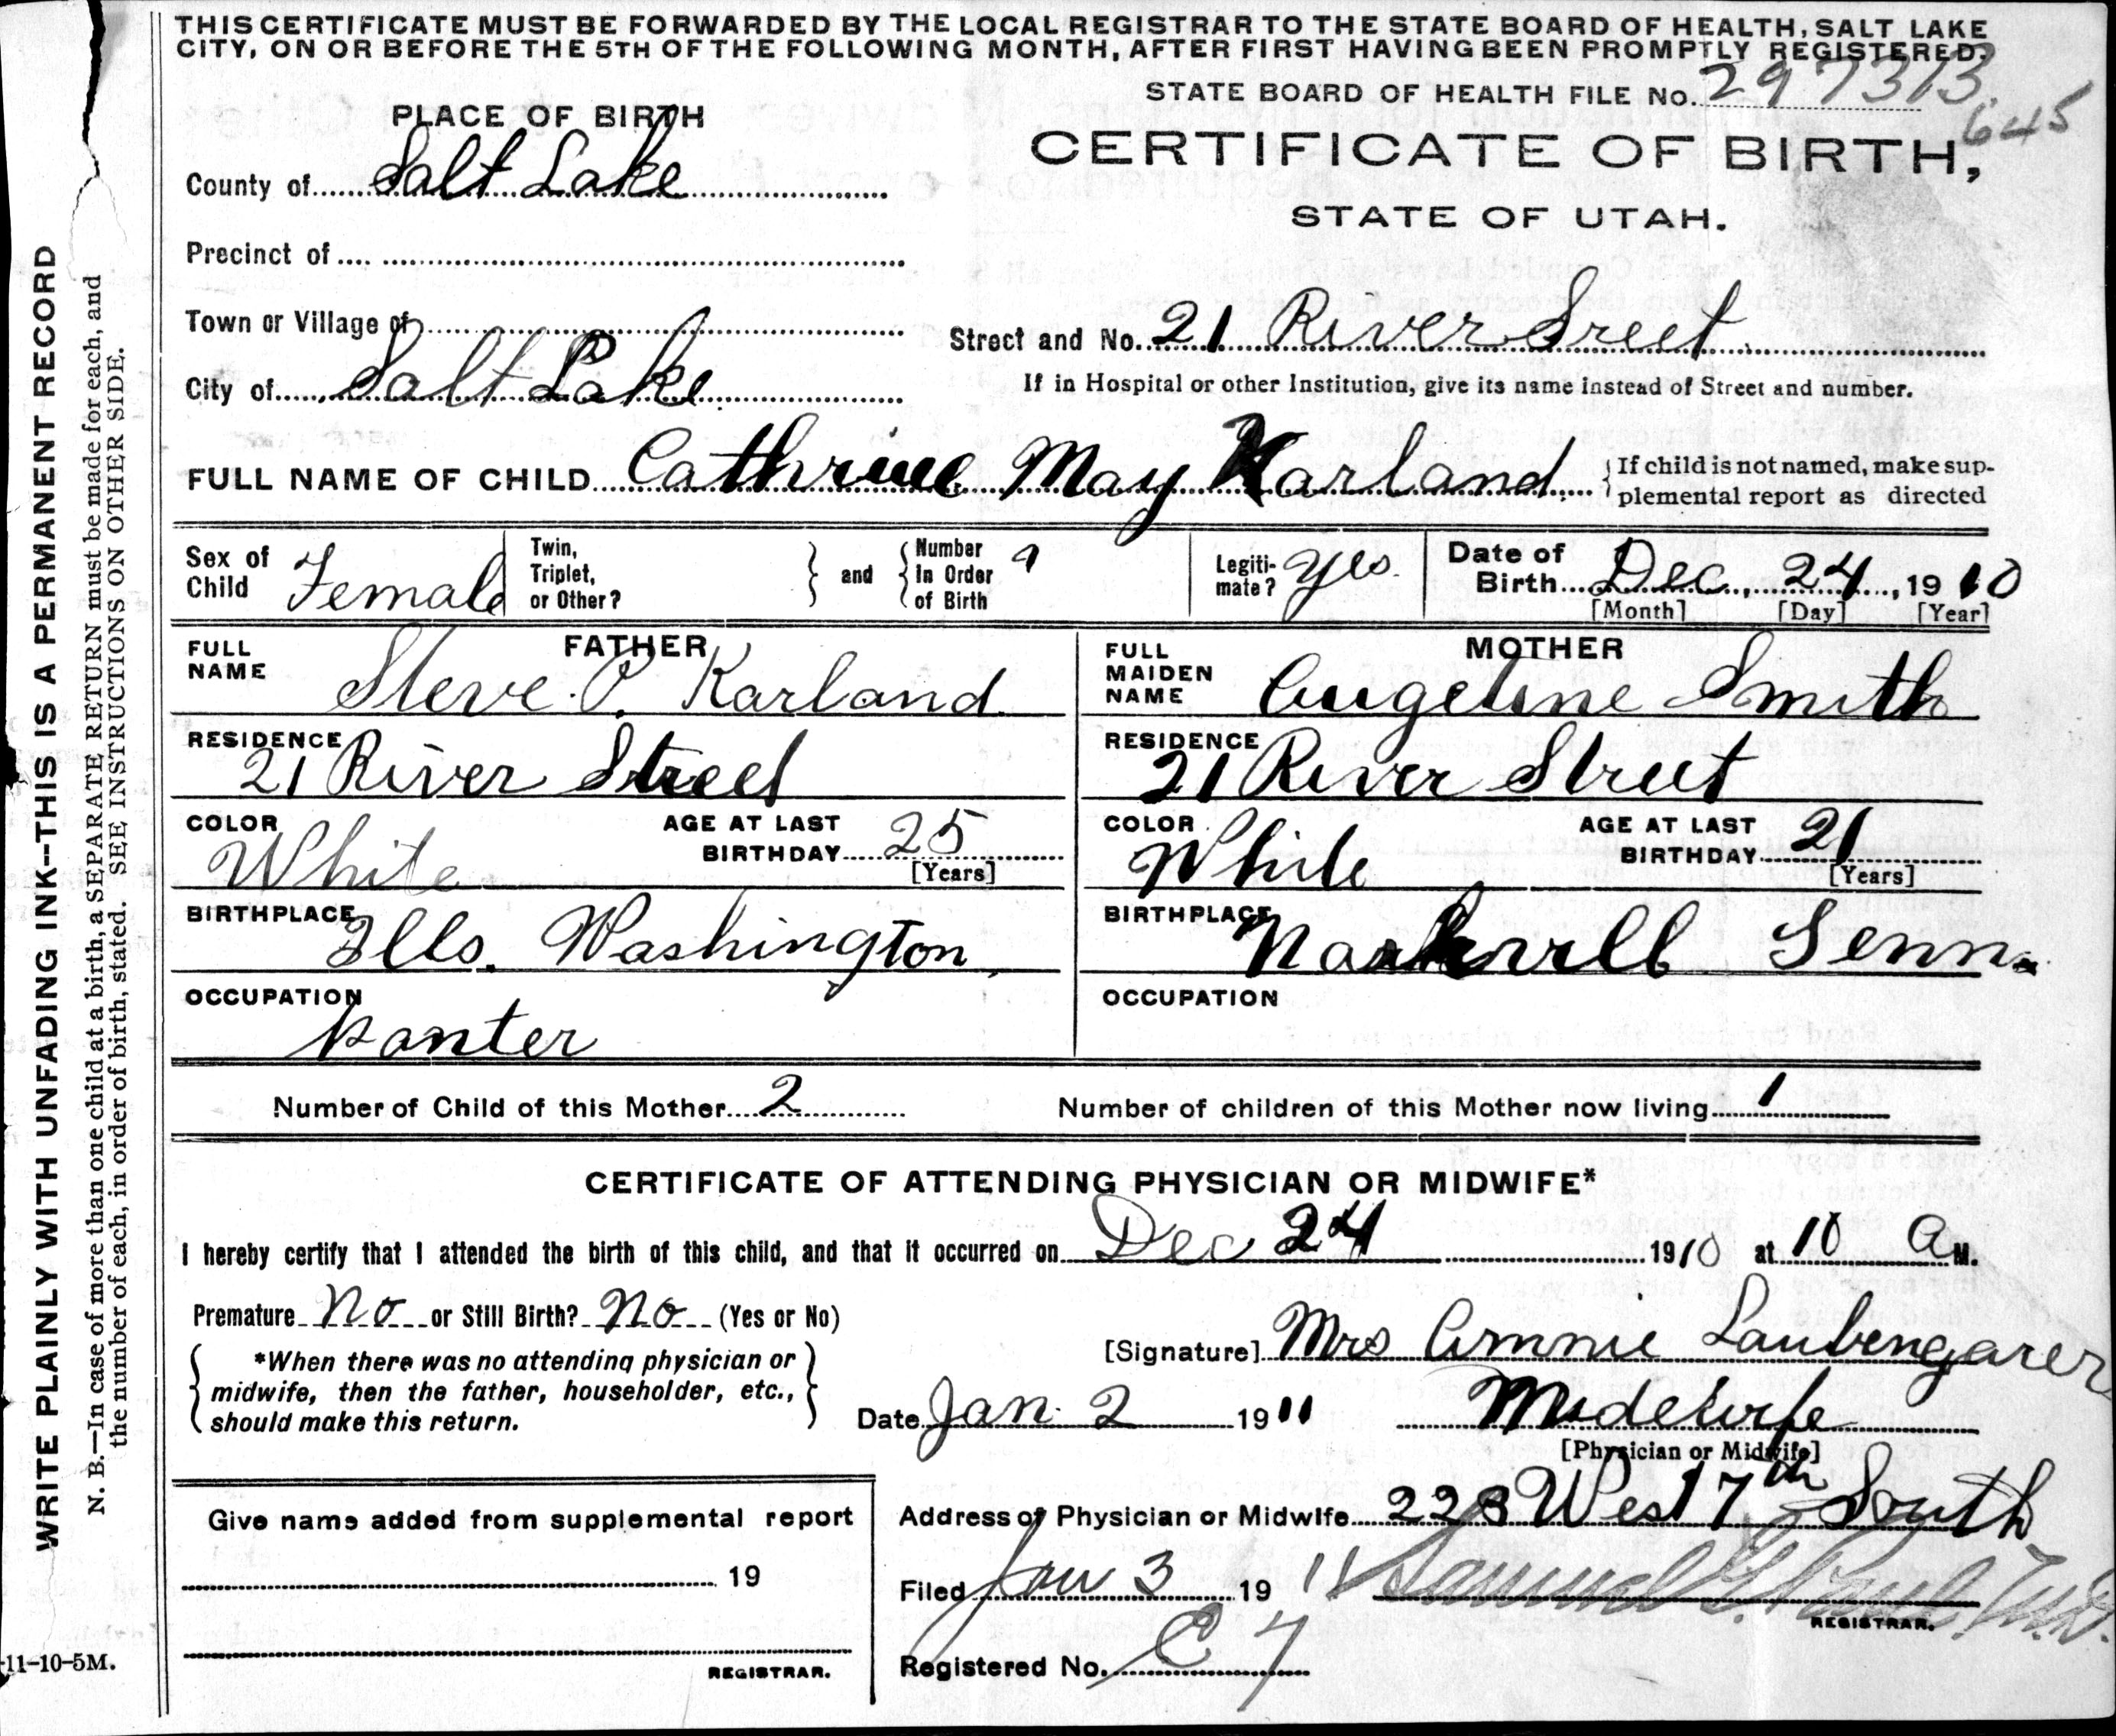 THIS CERTIFICATE MUST BE FORWARDED BY THE LOCAL REGISTRAR TO THE STATE BOARD OF HEALTH, SALT LAKE
CITY, ON OR BEFORE THE 5TH OF THE FOLLOWING MONTH, AFTER FIRST HAVING BEEN PROMPTLY REGISTERED.
STATE BOARD OF HEALTH FILE No. 297313
645
PLACE OF BIRTH
CERTIFICATE OF BIRTH,
STATE OF UTAH.
County of Salt Lake
Precinct of
Town or Village of
Street and No. 21 River Sreet
City of Salt Lake
If in Hospital or other Institution, give its name instead of Street and number.
FULL NAME OF CHILD Cathrine May Karland
If child is not named, make sup-
plemental report as directed
Sex of Child Female
Twin, Triplet, or Other?
and
Number In Order of Birth
Legiti-mate? Yes
Date of Birth Dec. 24, 1910
[Month] [Day] [Year]
FATHER
FULL NAME Steve P. Karland
MOTHER
FULL MAIDEN NAME Angeline Smith
RESIDENCE 21 River Street
RESIDENCE 21 River Street
COLOR White
AGE AT LAST BIRTHDAY 25
[Years]
COLOR White
AGE AT LAST BIRTHDAY 21
[Years]
BIRTHPLACE Ills. Washington
BIRTHPLACE Tenn.
OCCUPATION
OCCUPATION
Number of Child of this Mother 2
Number of children of this Mother now living 1
CERTIFICATE OF ATTENDING PHYSICIAN OR MIDWIFE*
I hereby certify that I attended the birth of this child, and that it occurred on Dec 24 1910 at 10 A M.
Premature No or Still Birth? No (Yes or No)
*When there was no attending physician or
midwife, then the father, householder, etc.,
should make this return.
[Signature] Mrs Annie Laubengarer
Date Jan. 2 1911
Midewife
[Physician or Midwife]
Give name added from supplemental report
19
REGISTRAR.
Address of Physician or Midwife 223 West 7th South
Filed Jan 3 1911 Samuel G. Paul M.D.
REGISTRAR.
Registered No. C 7
WRITE PLAINLY WITH UNFADING INK--THIS IS A PERMANENT RECORD
N. B.—In case of more than one child at a birth, a SEPARATE RETURN must be made for each, and
the number of each, in order of birth, stated. SEE INSTRUCTIONS ON OTHER SIDE.
11-10-5M.